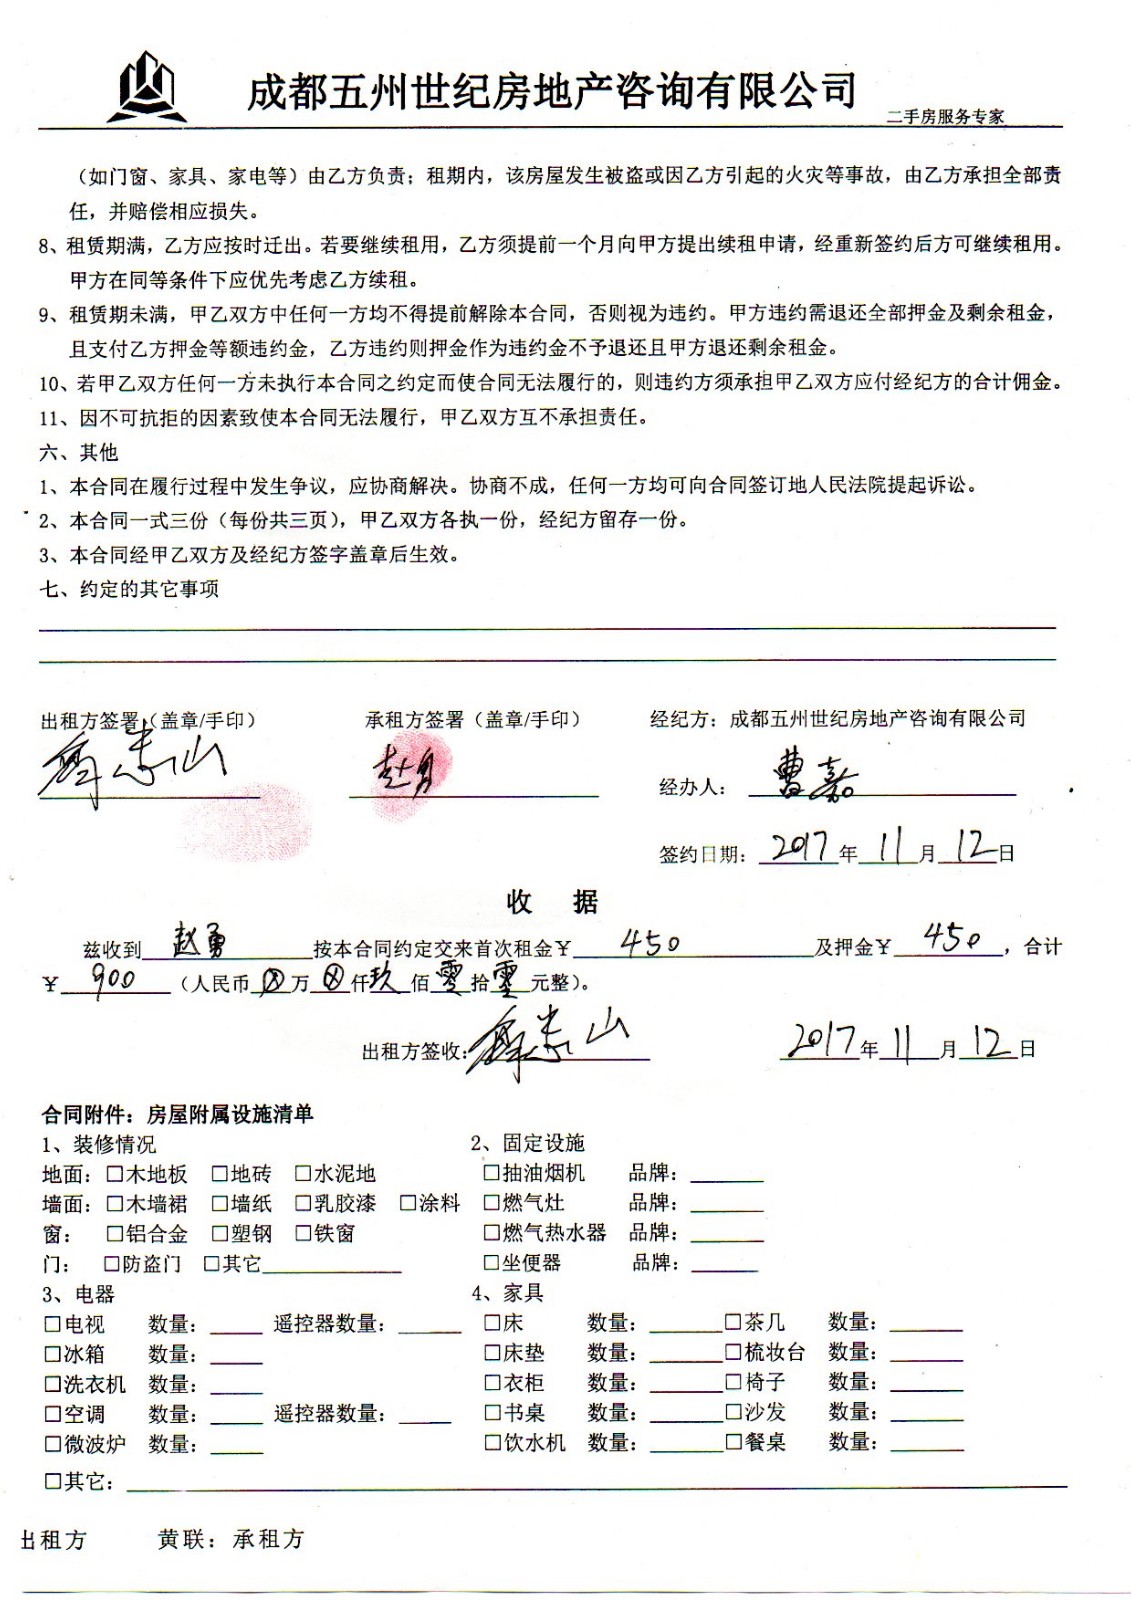 成都五州世纪房地产咨询有限公司
二手房服务专家
（如门窗、家具、家电等）由乙方负责；租期内，该房屋发生被盗或因乙方引起的火灾等事故，由乙方承担全部责
任，并赔偿相应损失。
8、租赁期满，乙方应按时迁出。若要继续租用，乙方须提前一个月向甲方提出续租申请，经重新签约后方可继续租用。
甲方在同等条件下应优先考虑乙方续租。
9、租赁期未满，甲乙双方中任何一方均不得提前解除本合同，否则视为违约。甲方违约需退还全部押金及剩余租金，
且支付乙方押金等额违约金，乙方违约则押金作为违约金不予退还且甲方退还剩余租金。
10、若甲乙双方任何一方未执行本合同之约定而使合同无法履行的，则违约方须承担甲乙双方应付经纪方的合计佣金。
11、因不可抗拒的因素致使本合同无法履行，甲乙双方互不承担责任。
六、其他
1、本合同在履行过程中发生争议，应协商解决。协商不成，任何一方均可向合同签订地人民法院提起诉讼。
2、本合同一式三份（每份共三页），甲乙双方各执一份，经纪方留存一份。
3、本合同经甲乙双方及经纪方签字盖章后生效。
七、约定的其它事项
出租方签署（盖章/手印） 承租方签署（盖章/手印） 经纪方：成都五州世纪房地产咨询有限公司
赵勇 经办人：曹嘉
签约日期：2017年11月12日
收 据
兹收到 赵勇 按本合同约定交来首次租金￥ 450 及押金￥ 450，合计
￥ 900 （人民币 ⊗ 万 ⊗ 仟 玖 佰 零 拾 零 元整）。
出租方签收： 2017年11月12日
合同附件：房屋附属设施清单
1、装修情况 2、固定设施
地面：□木地板 □地砖 □水泥地 □抽油烟机 品牌：
墙面：□木墙裙 □墙纸 □乳胶漆 □涂料 □燃气灶 品牌：
窗： □铝合金 □塑钢 □铁窗 □燃气热水器 品牌：
门： □防盗门 □其它 □坐便器 品牌：
3、电器 4、家具
□电视 数量： 遥控器数量： □床 数量： □茶几 数量：
□冰箱 数量： □床垫 数量： □梳妆台 数量：
□洗衣机 数量： □衣柜 数量： □椅子 数量：
□空调 数量： 遥控器数量： □书桌 数量： □沙发 数量：
□微波炉 数量： □饮水机 数量： □餐桌 数量：
□其它：
出租方 黄联：承租方